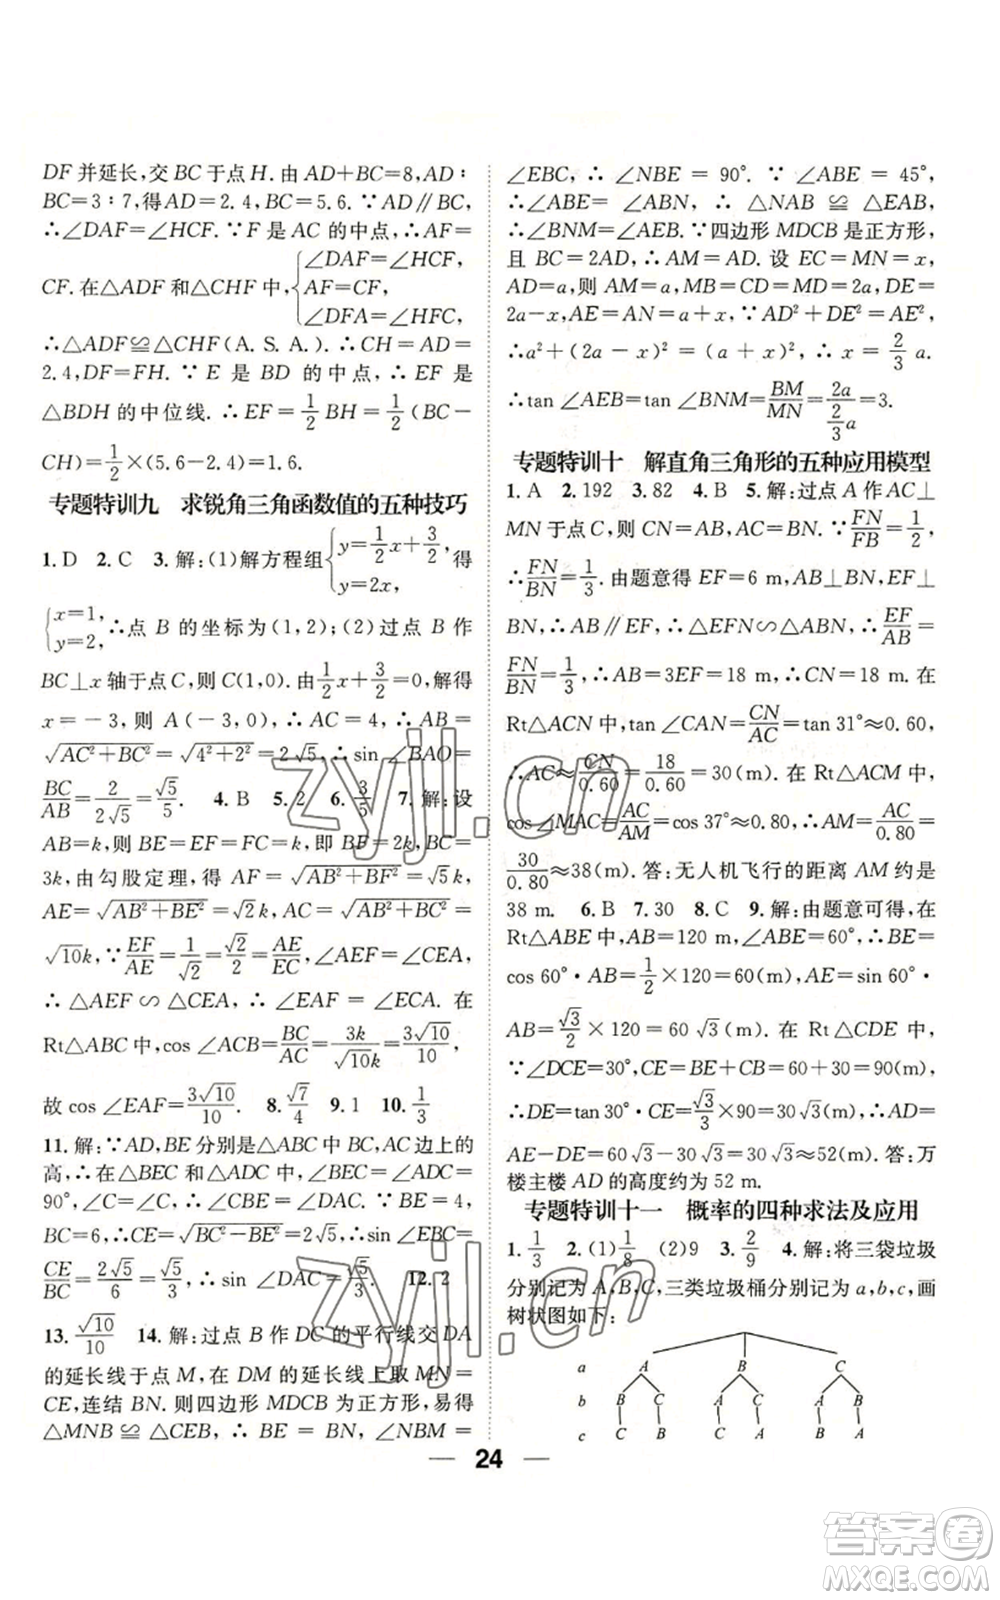 DF 并延长,交 BC 于点 H. 由 AD+BC=8,AD∶
BC=3∶7,得AD=2.4,BC=5.6. ∵AD∥BC,
∴∠DAF=∠HCF. ∵F 是 AC 的中点,∴AF=
CF. 在△ADF 和△CHF 中,{∠DAF=∠HCF, AF=CF, ∠DFA=∠HFC,
∴△ADF≌△CHF(A. S. A.). ∴CH=AD=
2.4,DF=FH. ∵E 是 BD 的中点,∴EF 是
△BDH 的中位线. ∴EF=1/2 BH=1/2(BC-
CH)=1/2×(5.6-2.4)=1.6.
专题特训九 求锐角三角函数值的五种技巧
1. D 2. C 3. 解:(1)解方程组{y=1/2x+3/2, y=2x, 得
{x=1, y=2, ∴点 B 的坐标为(1,2);(2)过点 B 作
BC⊥x 轴于点 C,则 C(1,0). 由1/2x+3/2=0,解得
x=-3,则 A(-3,0),∴AC=4,∴AB=
√(AC²+BC²)=√(4²+2²)=2√5,∴sin ∠BAO=
BC/AB=2/(2√5)=√5/5. 4. B 5. 2 6. 3/5 7. 解:设
AB=k,则 BE=EF=FC=k,即 BF=2k,BC=
3k,由勾股定理,得 AF=√(AB²+BF²)=√5k,
AE=√(AB²+BE²)=√2k,AC=√(AB²+BC²)=
√10k,∵EF/AE=1/√2=√2/2=AE/EC,
∴△AEF∽△CEA,∴∠EAF=∠ECA. 在
Rt△ABC 中,cos ∠ACB=BC/AC=3k/(√10k)=3√10/10,
故 cos ∠EAF=3√10/10. 8. √7/4 9. 1 10. 1/3
11. 解:∵AD,BE 分别是△ABC 中 BC,AC 边上的
高,∴在△BEC 和△ADC 中,∠BEC=∠ADC=
90°,∠C=∠C,∴∠EBC=∠DAC. ∵BE=4,
BC=6,∴EC=√(BC²-BE²)=2√5,∴sin ∠EBC=
CE/BC=2√5/6=√5/3,∴sin ∠DAC=√5/3. 12. 2
13. √10/10 14. 解:过点 B 作 DC 的平行线交 DA
的延长线于点 M,在 DM 的延长线上取 MN=
CE,连结 BN. 则四边形 MDCB 为正方形,易得
△MNB≌△CEB,∴BE=BN,∠NBM=
∠EBC,∴∠NBE=90°. ∵∠ABE=45°,
∴∠ABE=∠ABN,∴△NAB≌△EAB,
∴∠BNM=∠AEB. ∵四边形 MDCB 是正方形,
且 BC=2AD,∴AM=AD. 设 EC=MN=x,
AD=a,则 AM=a,MB=CD=MD=2a,DE=
2a-x,AE=AN=a+x,∵AD²+DE²=AE²,
∴a²+(2a-x)²=(a+x)²,∴x=2/3 a.
∴tan ∠AEB=tan ∠BNM=BM/MN=2a/(2/3 a)=3.
专题特训十 解直角三角形的五种应用模型
1. A 2. 192 3. 82 4. B 5. 解:过点 A 作 AC⊥
MN 于点 C,则 CN=AB,AC=BN. ∵FN/FB=1/2,
∴FN/BN=1/3. 由题意得 EF=6 m,AB⊥BN,EF⊥
BN,∴AB∥EF,∴△EFN∽△ABN,∴EF/AB=
FN/BN=1/3,∴AB=3EF=18 m. ∴CN=18 m. 在
Rt△ACN 中,tan ∠CAN=CN/AC=tan 31°≈0.60,
∴AC≈CN/0.60=18/0.60=30(m). 在 Rt△ACM 中,
cos∠MAC=AC/AM=cos 37°≈0.80,∴AM≈AC/0.80=
30/0.80≈38(m). 答:无人机飞行的距离 AM 约是
38 m. 6. B 7. 30 8. C 9. 解:由题意可得,在
Rt△ABE 中,AB=120 m,∠ABE=60°,∴BE=
cos 60°·AB=1/2×120=60(m),AE=sin 60°·
AB=√3/2×120=60√3(m). 在 Rt△CDE 中,
∵∠DCE=30°,CE=BE+CB=60+30=90(m),
∴DE=tan 30°·CE=√3/3×90=30√3(m),∴AD=
AE-DE=60√3-30√3=30√3≈52(m). 答:万
楼主楼 AD 的高度约为 52 m.
专题特训十一 概率的四种求法及应用
1. 1/3 2. (1)1/8 (2)9 3. 2/9 4. 解:将三袋垃圾
分别记为 A,B,C,三类垃圾桶分别记为 a,b,c,画
树状图如下:
a A B C
b B C A C A B
c C B C A B A
24
zyjl.cn
zyjl.cn
答案卷
MXQE.COM